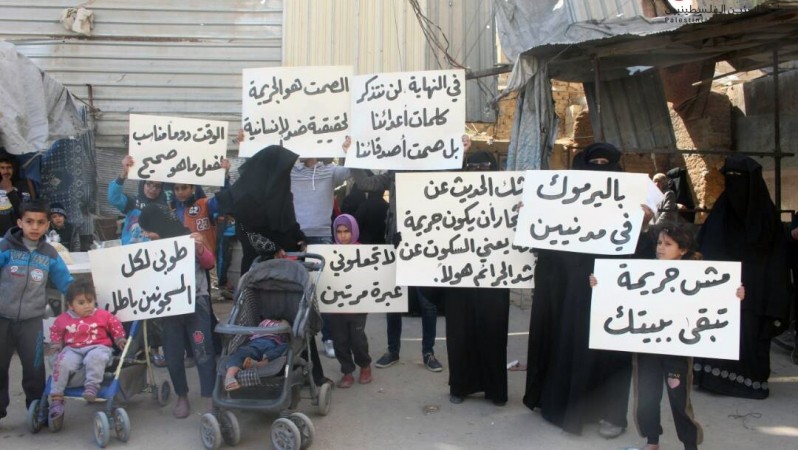 الفلسطينيين
الصمت هو الجريمة
الحقيقية ضد الإنسانية
في النهاية لن نتذكر
كلمات أعدائنا
بل صمت أصدقائنا
الوقت دوماً مناسب
لفعل ما هو صحيح
الحديث عن
أن يكون جريمة
يعني السكوت عن
الجرائم هولاً.
باليرموك
في مدنيين
طوبى لكل
المسجونين باطل
لا تجعلوني
عبرة مرتين
مش جريمة
تبقى ببيتك